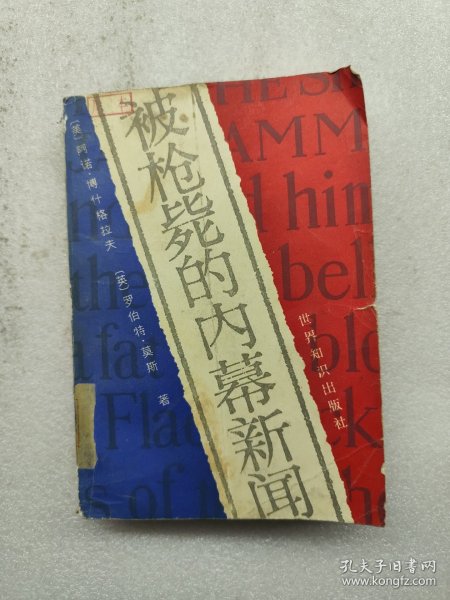 被枪毙的内幕新闻
〔美〕阿诺·博什格拉夫
〔英〕罗伯特·莫斯 著
世界知识出版社
THE S
AMM
him
the
bel
a fat
blo
Flad
ck
s of
he
孔夫子旧书网
www.kongfz.com